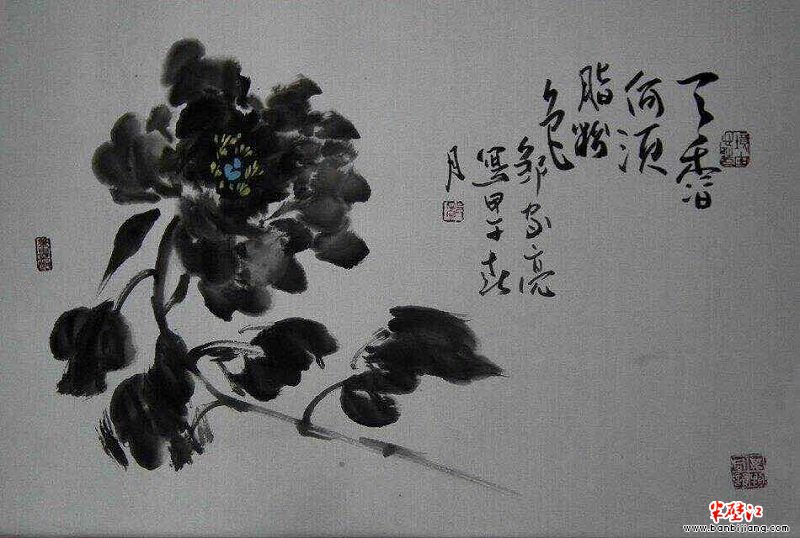 天香
何须
脂粉
色
邹家亮
写甲午春
月
半壁江
www.banbijiang.com